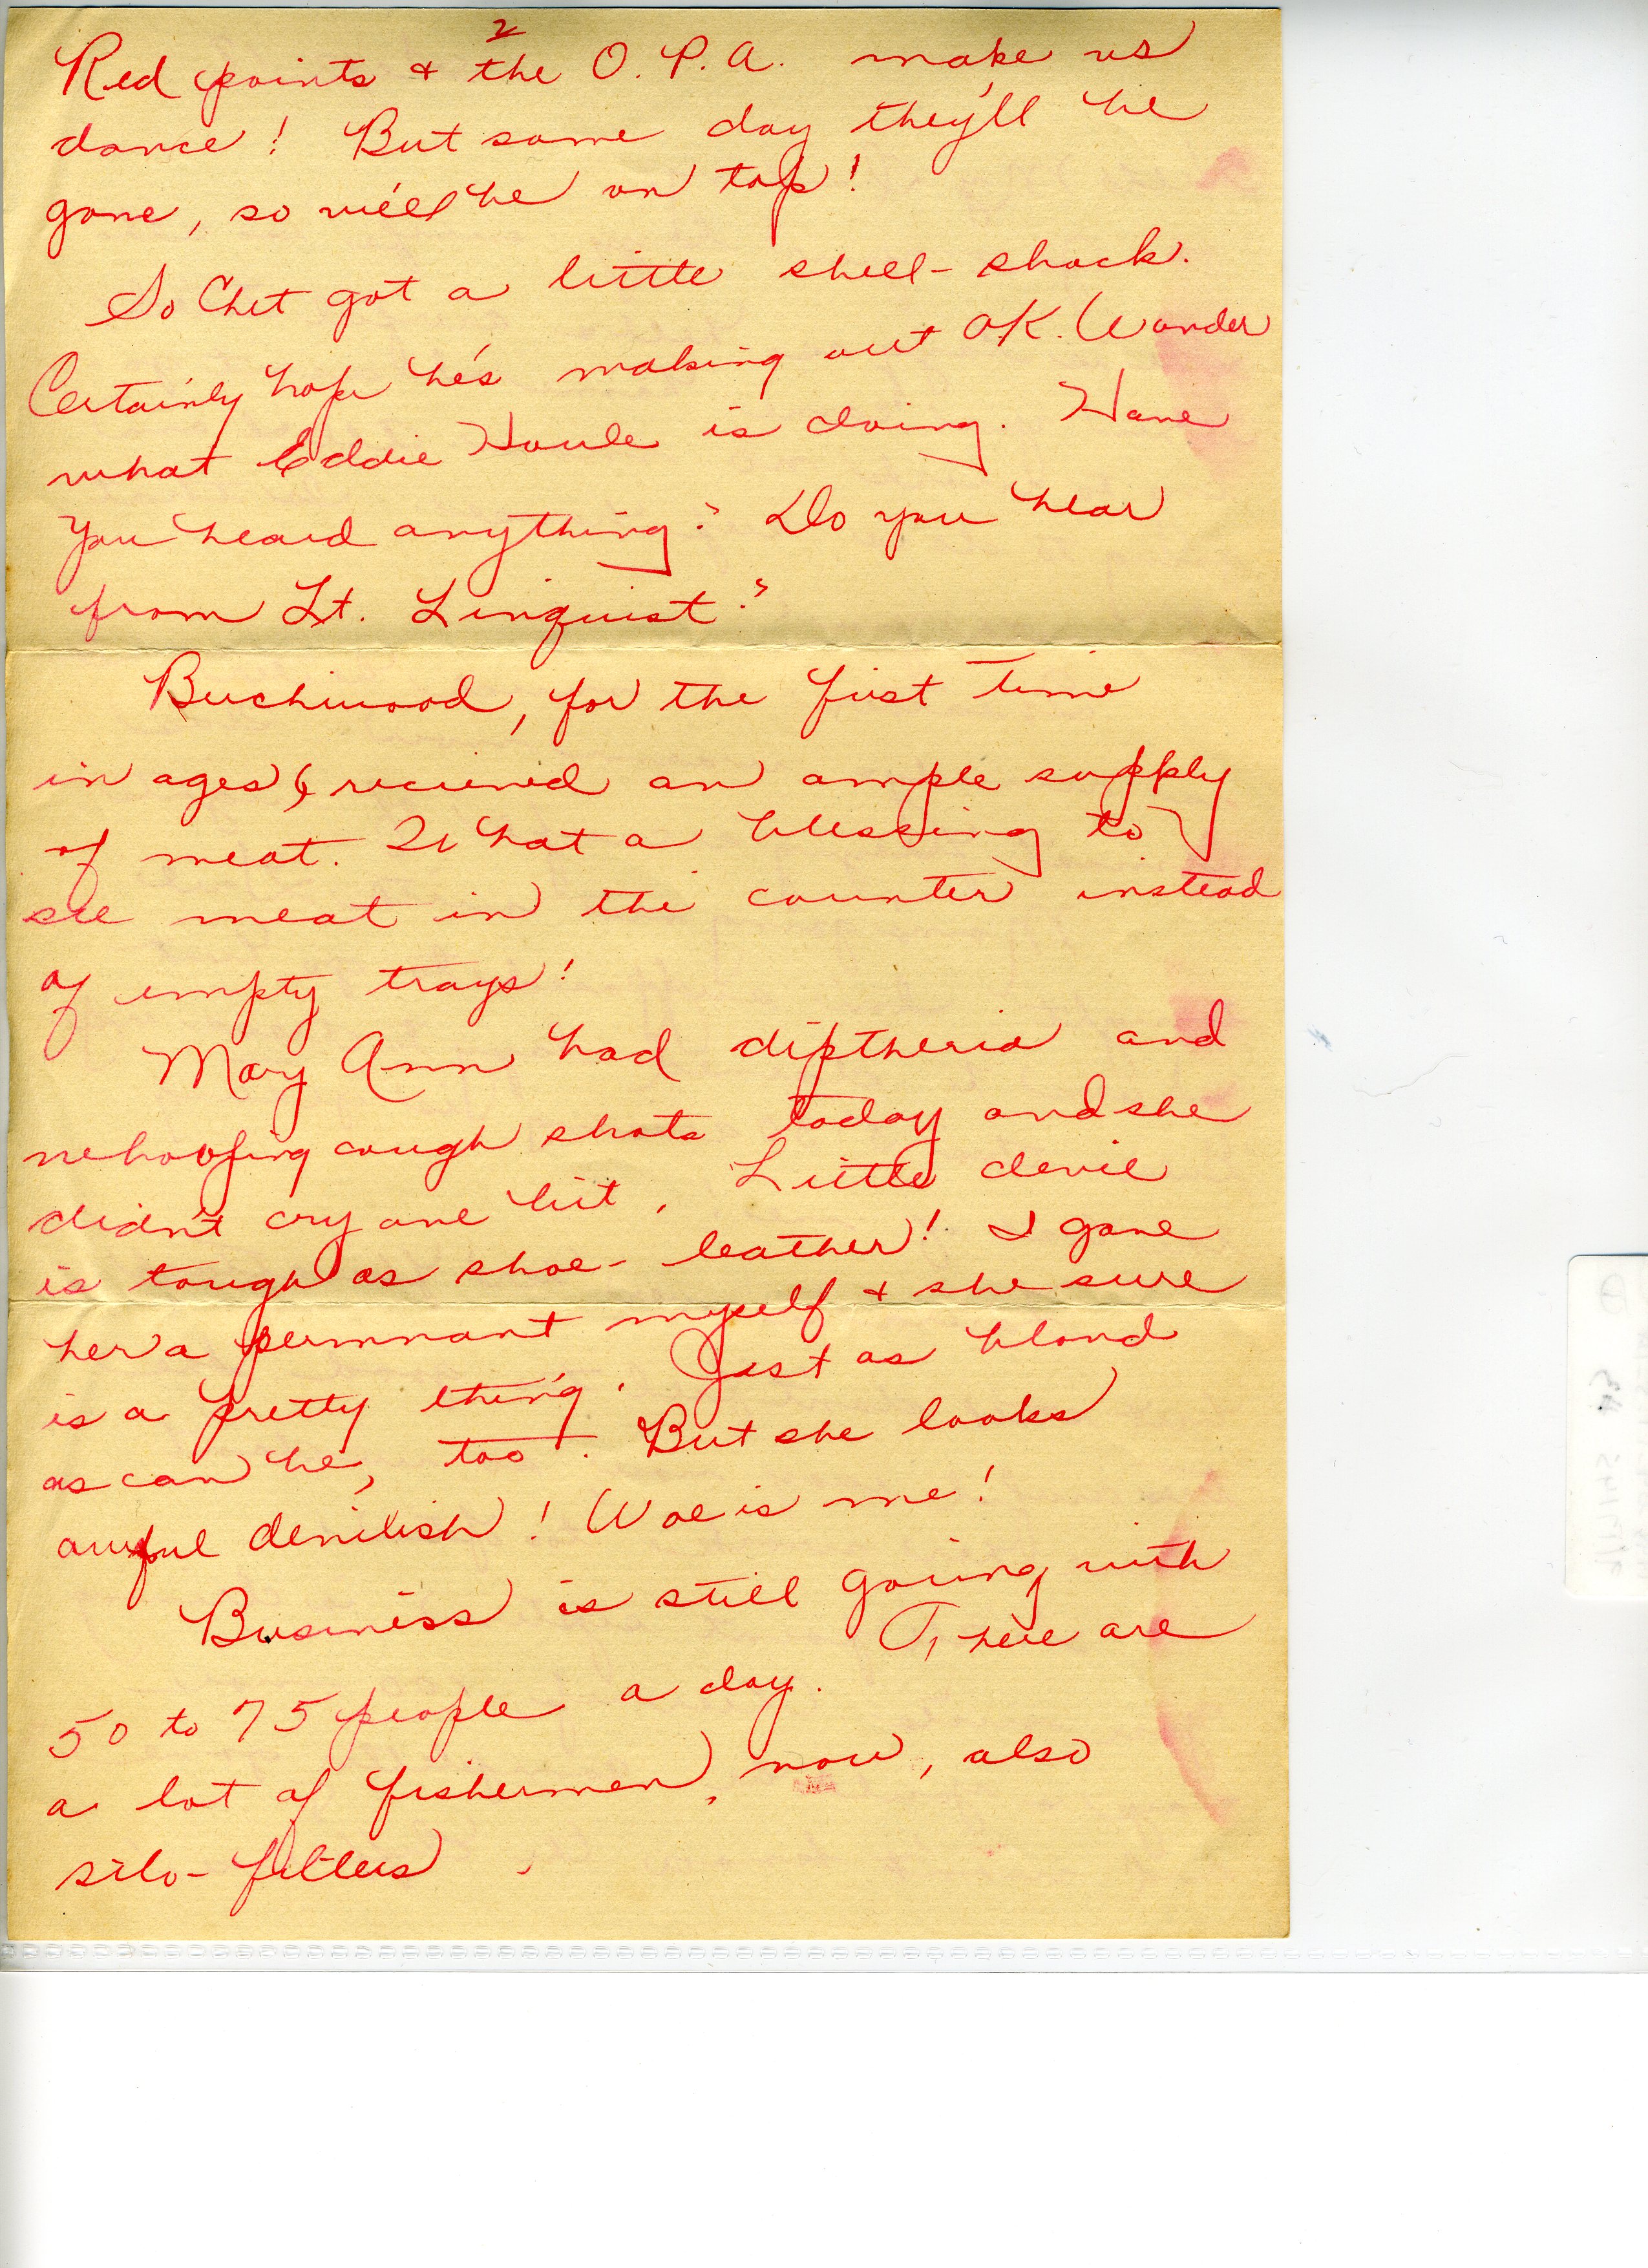 2
Red points & the O.P.A. make us
dance! But some day they'll be
gone, so we'll be on top!
So Chet got a little shell-shock.
Certainly hope he's making out O.K. Wonder
what Eddie Houle is doing. Have
you heard anything? Do you hear
from Lt. Linquist?
Buchwood, for the first time
in ages, recieved an ample supply
of meat. What a blessing to
see meat in the counter instead
of empty trays!
Mary Ann had diptheria and
whooping cough shots today and she
didn't cry one bit. Little devil
is tough as shoe-leather! I gave
her a permnant myself & she sure
is a pretty thing. Just as blond
as can be, too. But she looks
awful devilish! Woe is me!
Business is still going with
50 to 75 people a day. There are
a lot of fishermen, now, also
silo-fillers.